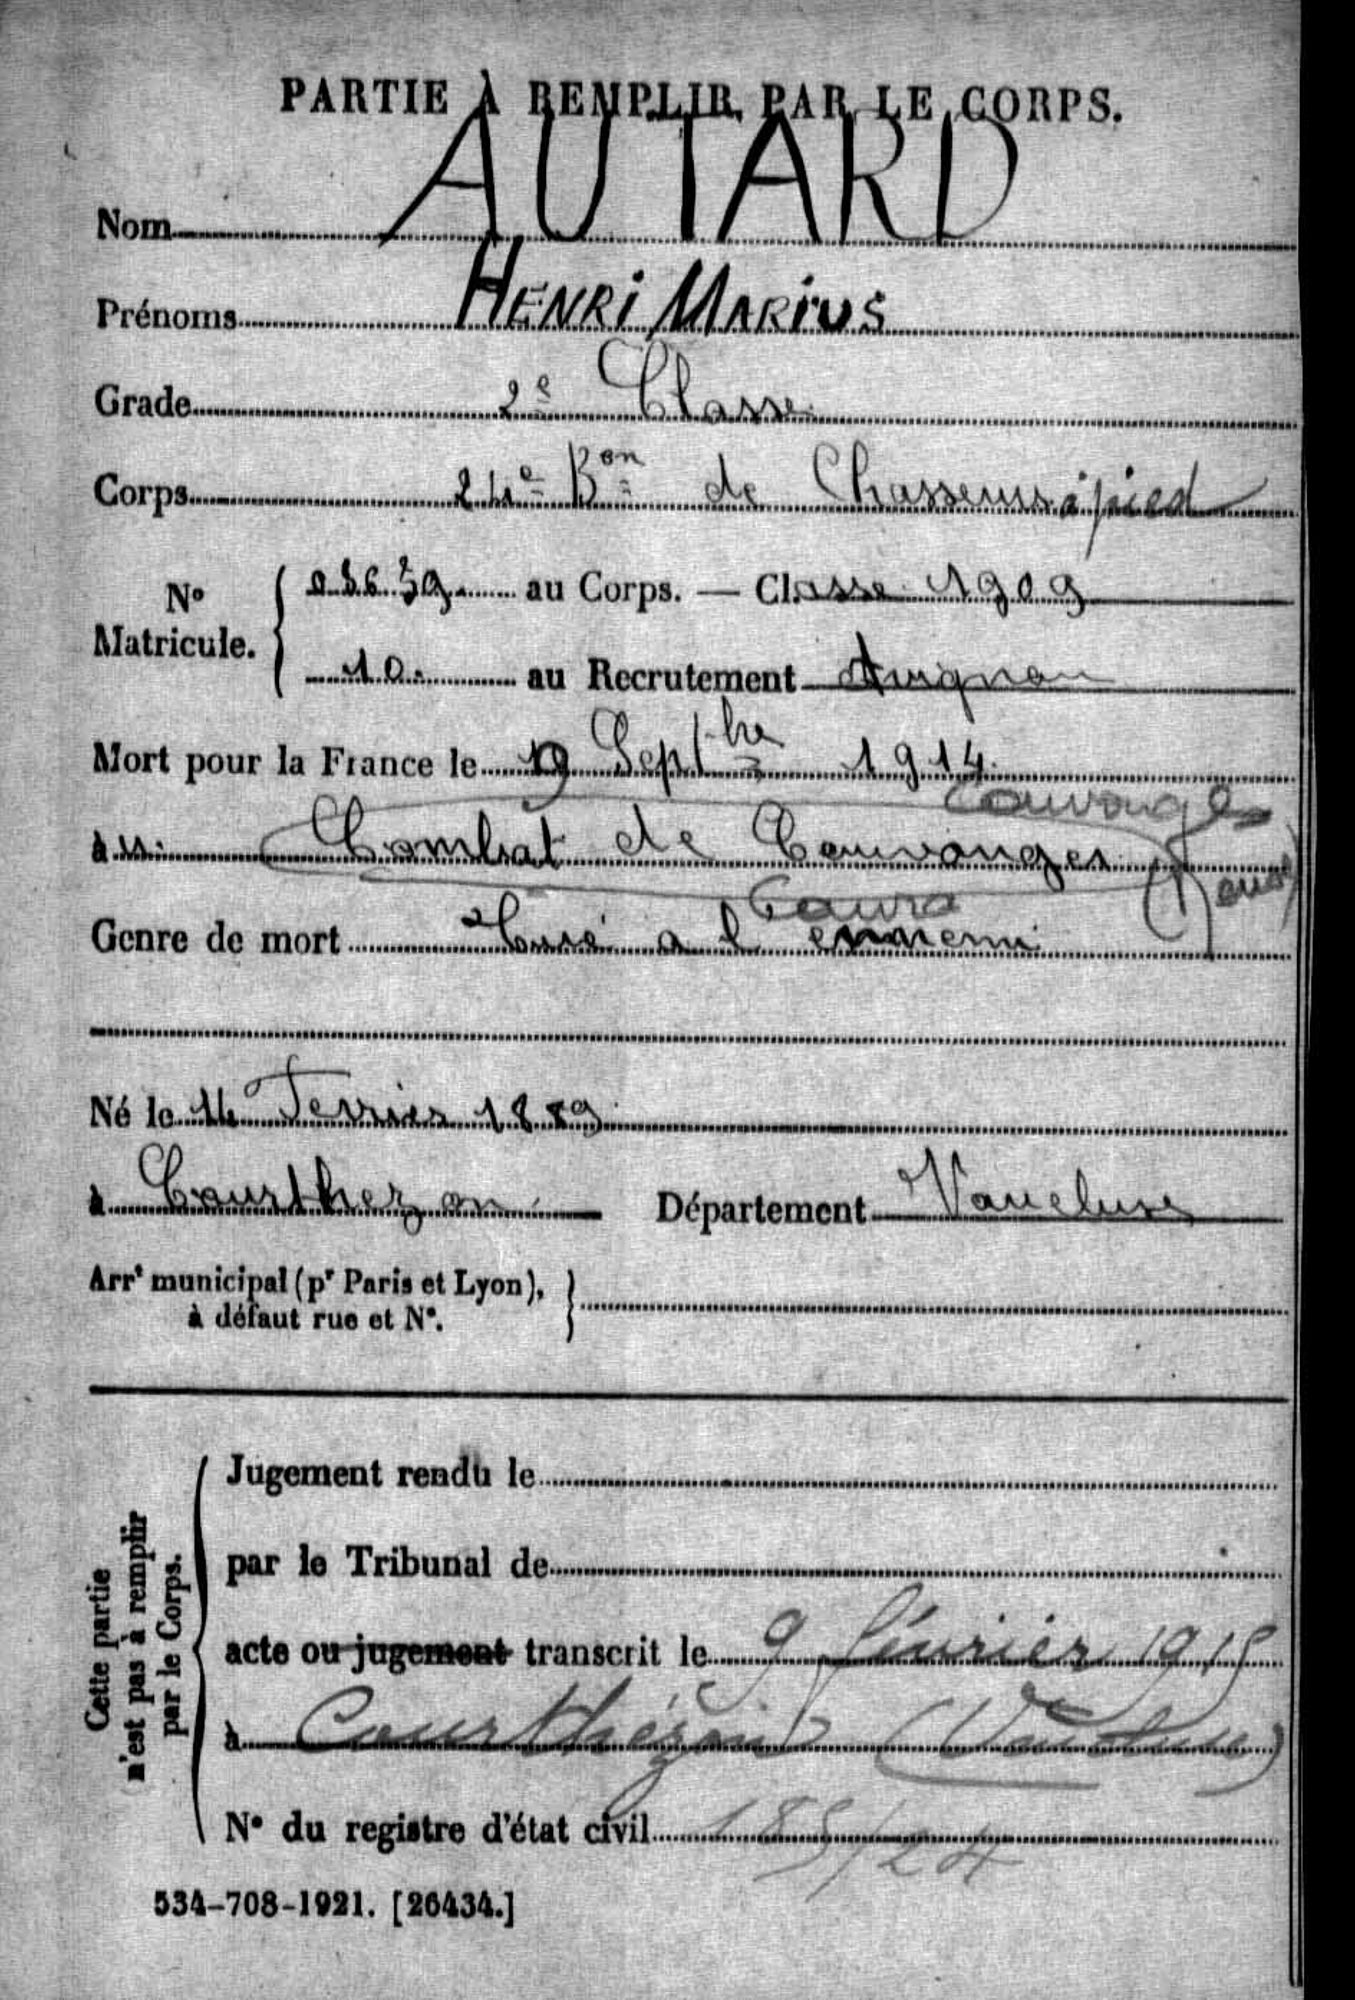 PARTIE À REMPLIR PAR LE CORPS.
Nom AUTARD
Prénoms HENRI MARIUS
Grade 2e Classe
Corps 24e Bon de Chasseurs à pied
No Matricule. { 03639 au Corps. — Classe 1909
10. au Recrutement Avignon
Mort pour la France le 19 Septbre 1914
Couvonges
à u. Combat de Couvonges (Meuse)
Genre de mort Tué à l'ennemi
Né le 14 Février 1889
à Courthezon Département Vaucluse
Arrt municipal (pr Paris et Lyon), à défaut rue et N°. }
Cette partie n'est pas à remplir par le Corps.
Jugement rendu le
par le Tribunal de
acte ou jugement transcrit le 9 février 1915
à Courthézon (Vaucluse)
N° du registre d'état civil 185/24
534-708-1921. [26434.]